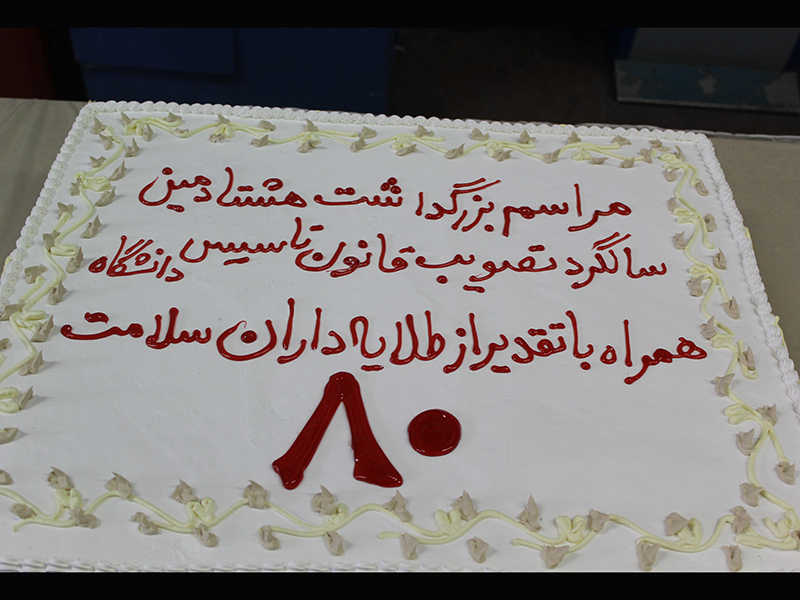 مراسم بزرگداشت هشتادمین
سالگرد تصویب قانون تاسیس دانشگاه
همراه با تقدیر از طلایه داران سلامت
۸۰